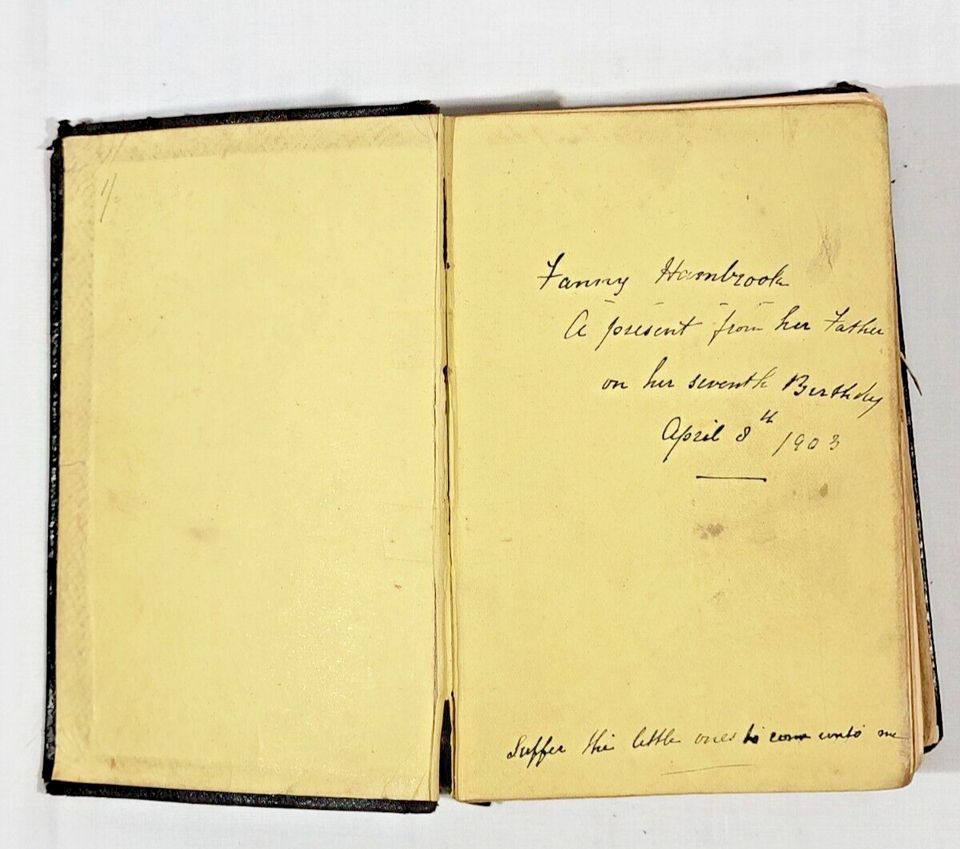 1/
Fanny Hambrook
A present from her Father
on her seventh Birthday
April 8th 1903
Suffer the little ones to come unto me